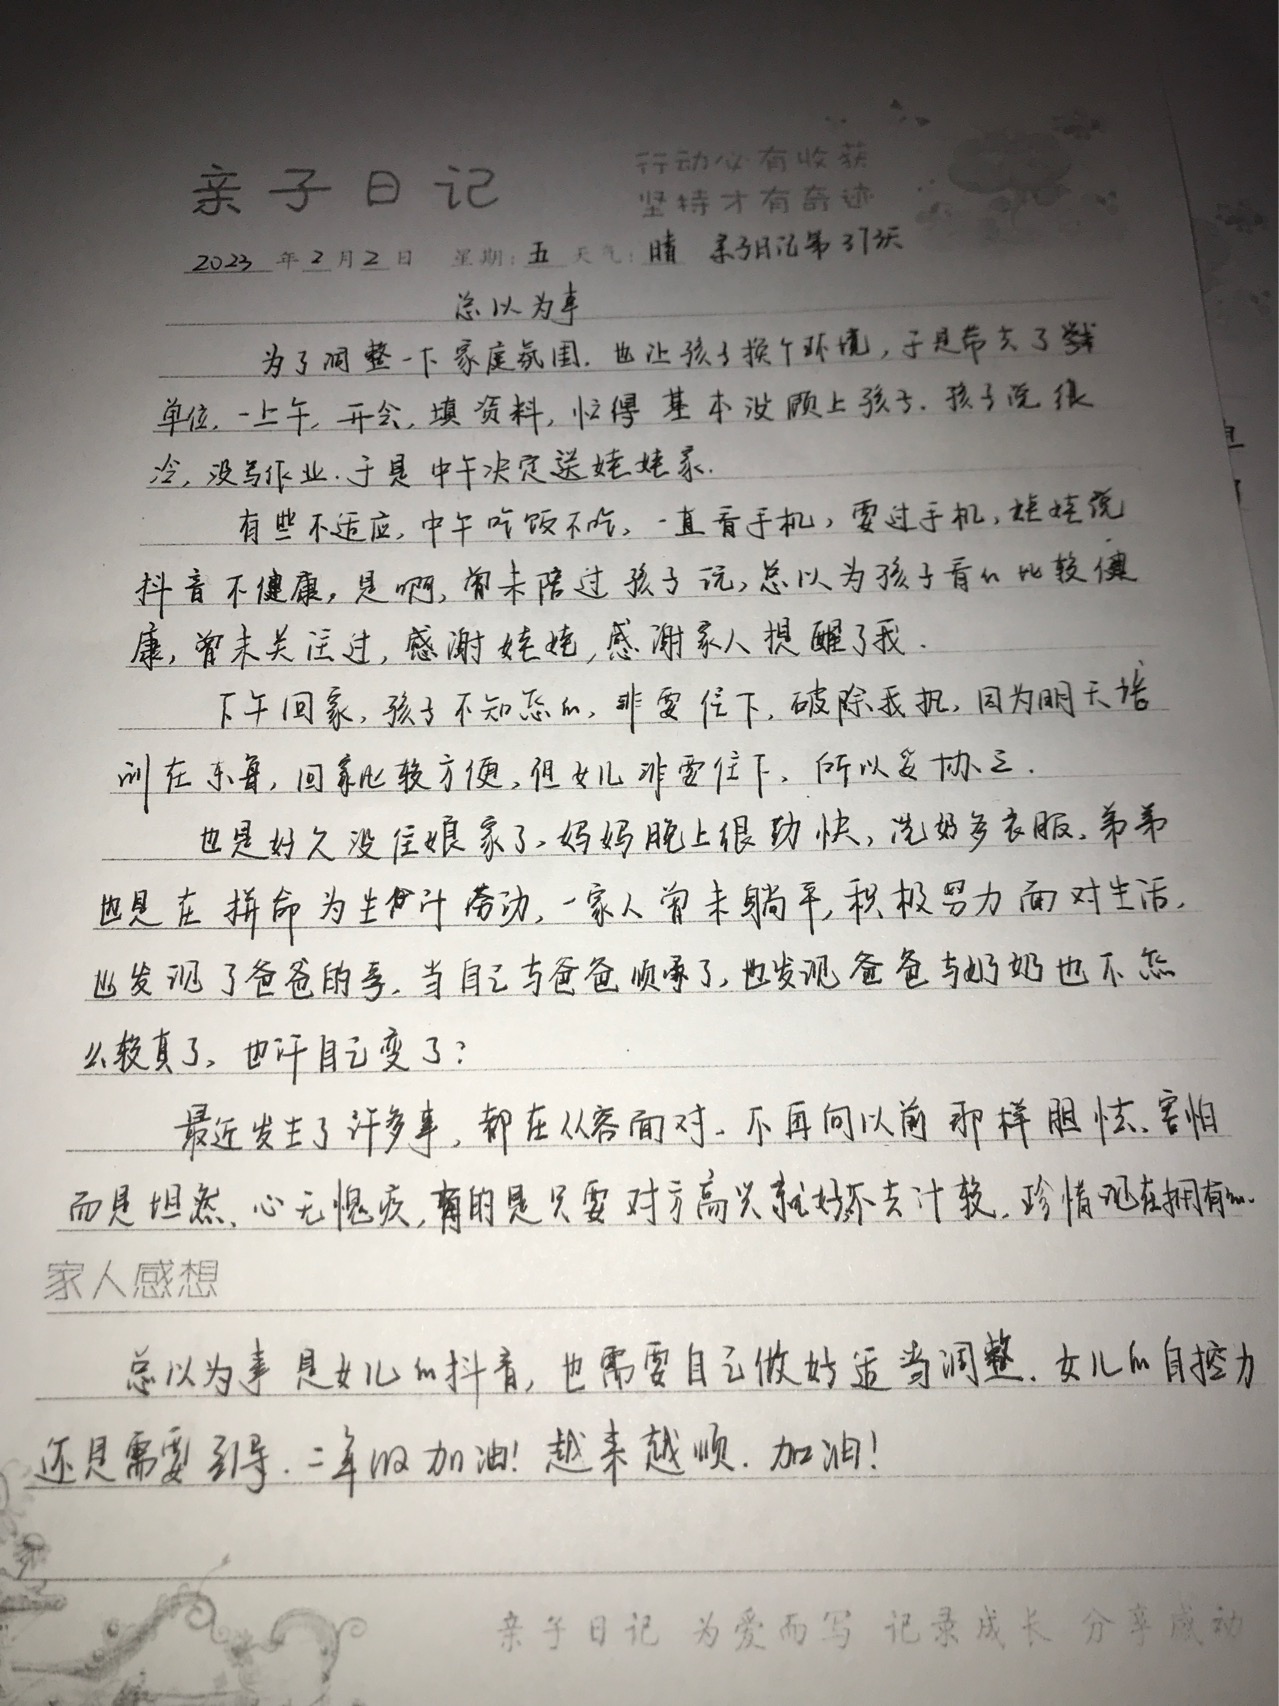 亲子日记
行动必有收获
坚持才有奇迹
2023年2月2日 星期:五 天气:晴 亲子日记第373天
总以为事
为了调整一下家庭氛围.也让孩子换个环境,于是带去了
单位,一上午,开会,填资料,忙得基本没顾上孩子.孩子说很
冷,没写作业.于是中午决定送娃娃家.
有些不适应,中午吃饭不吃,一直看手机,要过手机,娃娃说
抖音不健康,是啊,曾未陪过孩子玩,总以为孩子看的比较健
康,曾未关注过,感谢娃娃,感谢家人提醒了我.
下午回家,孩子不知怎的,非要住下,破除我执,因为明天培
训在东,回家比较方便,但女儿非要住下,所以妥协之.
也是好久没住娘家了,妈妈晚上很勤快,洗好多衣服,弟弟
也是在拼命为生计劳动,一家人曾未躺平,积极努力面对生活,
也发现了爸爸的,当自己与爸爸顺了,也发现爸爸与奶奶也不怎
么较真了,也许自己变了?
最近发生了许多事,都在从容面对,不再向以前那样胆怯、害怕
而是坦然、心无愧疚,有的是只要对方高兴就好不去计较,珍惜现在拥有的.
家人感想
总以为事是女儿的抖音,也需要自己做好适当调整.女儿的自控力
还是需要引导.二年级加油!越来越顺.加油!
亲子日记 为爱而写 记录成长 分享感动